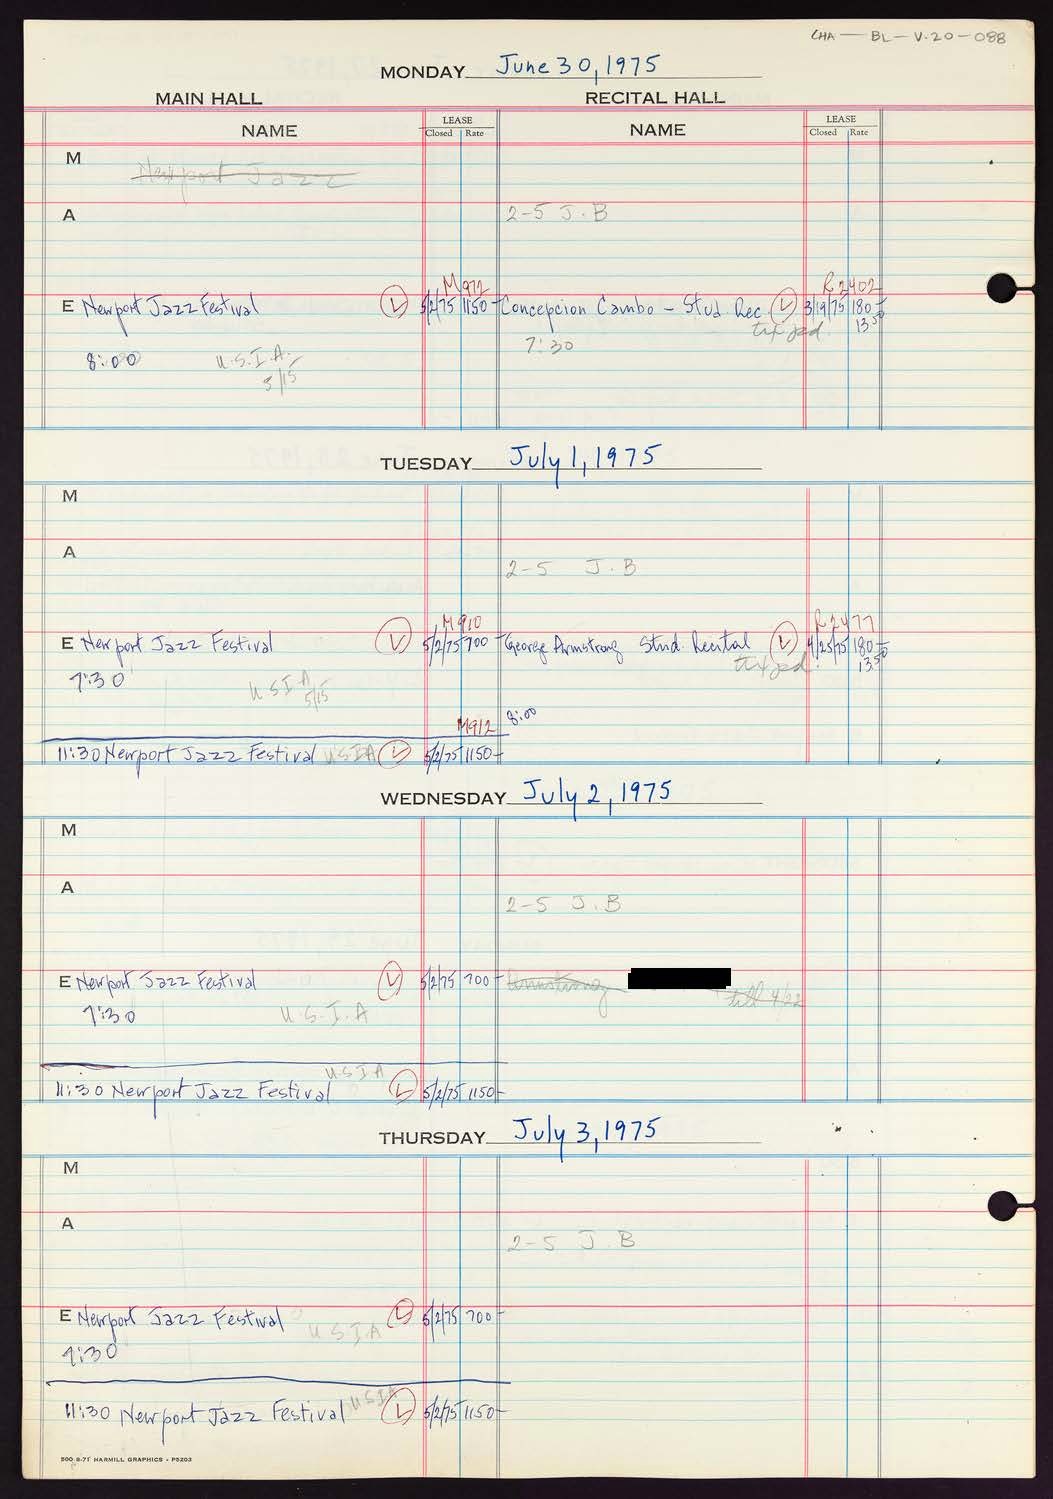 CHA — BL — V.20 — 088
MONDAY June 30, 1975
MAIN HALL RECITAL HALL
NAME LEASE Closed Rate NAME LEASE Closed Rate
M Newport Jazz
A 2-5 J.B
M 972 R 2402
E Newport Jazz Festival L 5/2/75 1150- Concepcion Cambo - Stud. Rec. L 3/19/75 180-
13.50
8:00 U.S.I.A. 7:30
5/15
TUESDAY July 1, 1975
M
A 2-5 J.B
M 910 R 2477
E Newport Jazz Festival L 5/2/75 700- George Armstrong Stud. Recital L 4/25/75 180-
13.50
7:30 USIA
5/15
M912 8:00
11:30 Newport Jazz Festival USIA L 5/2/75 1150-
WEDNESDAY July 2, 1975
M
A 2-5 J.B
E Newport Jazz Festival L 5/2/75 700- Armstrong till 4/22
7:30 U.S.I.A
USIA
11:30 Newport Jazz Festival L 5/2/75 1150-
THURSDAY July 3, 1975
M
A 2-5 J.B
E Newport Jazz Festival USIA L 5/2/75 700-
7:30
11:30 Newport Jazz Festival USIA L 5/2/75 1150-
500 8-71 HARMILL GRAPHICS - P5203